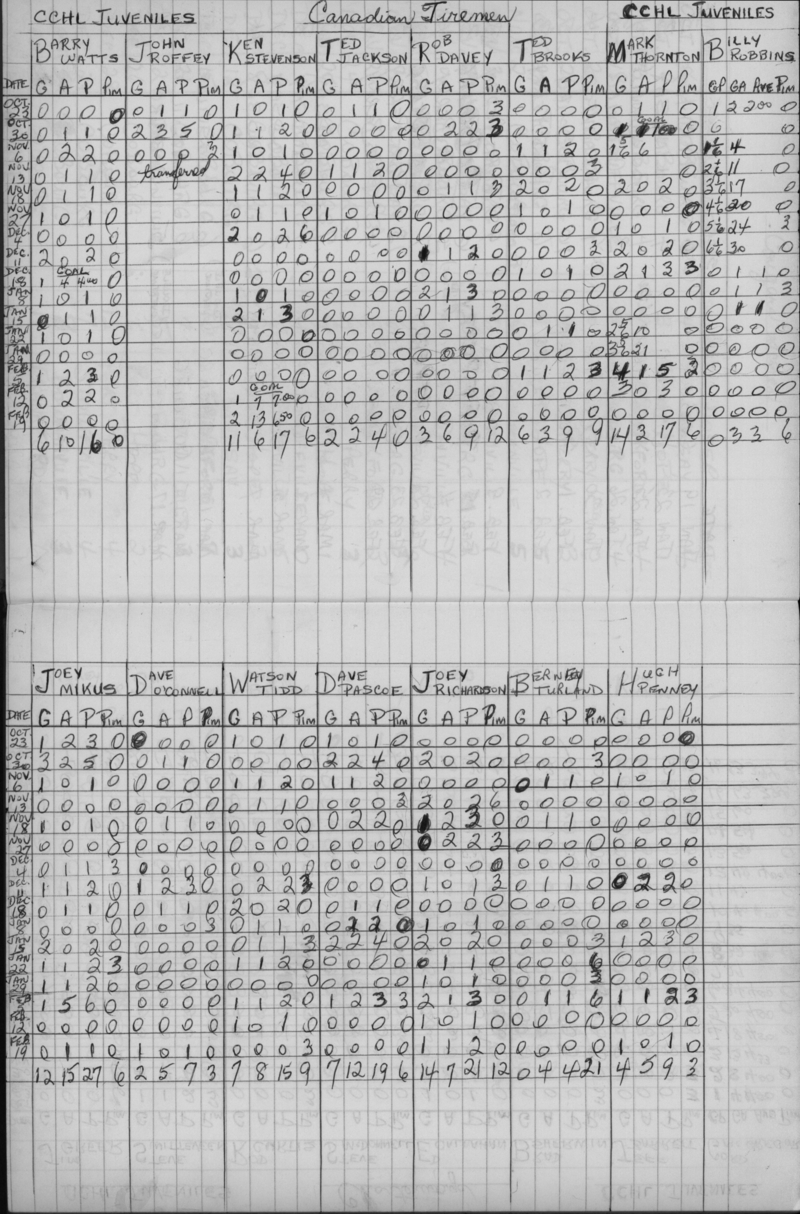 CCHL JUVENILES Canadian Tiremen CCHL JUVENILES
BARRY WATTS JOHN ROFFEY KEN STEVENSON TED JACKSON ROB DAVEY TED BROOKS MARK THORNTON BILLY ROBBINS
DATE G A P Pim G A P Pim G A P Pim G A P Pim G A P Pim G A P Pim G A P Pim GP GA AVE Pim
OCT 23 0 0 0 0 0 1 1 0 1 0 1 0 0 1 1 0 0 0 0 3 0 0 0 0 0 1 1 0 1 2 200 0
OCT 30 0 1 1 0 2 3 5 0 1 1 2 0 0 0 0 0 0 2 2 3 0 0 0 0
NOV 6 0 2 2 0 0 0 0 3 1 0 1 0 0 0 0 0 0 0 0 0 1 1 2 0
NOV 13 0 1 1 0 transferred 2 2 4 0 1 1 2 0 0 0 0 0 0 0 0 3
NOV 18 0 1 1 0 1 1 2 0 0 0 0 0 0 1 1 3 2 0 2 0 2 0 2 0
NOV 27 1 0 1 0 0 1 1 0 1 0 1 0 0 0 0 0 1 0 1 0 0 0 0 0
DEC 4 0 0 0 0 2 0 2 6 0 0 0 0 0 0 0 0 0 0 0 0 1 0 1 0
DEC 11 2 0 2 0 0 0 0 0 0 0 0 0 1 1 2 0 0 0 0 3 2 0 2 0
DEC 18 GOAL 1 4 400 0 0 0 0 0 0 0 0 0 0 0 0 0 1 0 1 0 2 1 3 3 0 1 1 0
JAN 8 1 0 1 0 1 0 1 0 0 0 0 0 2 1 3 0 0 0 0 0 0 0 0 0 0 1 1 3
JAN 15 0 1 1 0 2 1 3 0 0 0 0 0 0 1 1 3 0 0 0 0 0 0 0 0 0 1 1 0
JAN 22 1 0 1 0 0 0 0 0 0 0 0 0 0 0 0 0 0 1 1 0 0 0 0 0
0 0 0 0 0 0 0 0 0 0 0 0 0 0 0 0 0 0 0 0 0 0 0 0
FEB 1 2 3 0 0 0 0 0 0 0 0 0 0 0 0 0 1 1 2 3 4 1 5 3 0 0 0 0
FEB 12 0 2 2 0 GOAL 1 7 7.00 0 0 0 0 0 0 0 0 0 0 0 0 0 3 0 3 0 0 0 0 0
FEB 19 0 0 0 0 2 13 650 0 0 0 0 0 0 0 0 0 0 0 0 0 0 0 0 0 0 0 0 0
6 10 16 0 11 6 17 6 2 2 4 0 3 6 9 12 6 3 9 9 14 3 17 6 0 3 3 6
JOEY MIKUS DAVE O'CONNELL WATSON TIDD DAVE PASCOE JOEY RICHARDSON BERNEY TURLAND HUGH PENNEY
DATE G A P Pim G A P Pim G A P Pim G A P Pim G A P Pim G A P Pim G A P Pim
OCT 23 1 2 3 0 0 0 0 0 1 0 1 0 1 0 1 0 0 0 0 0 0 0 0 0 0 0 0 0
OCT 30 3 2 5 0 0 1 1 0 0 0 0 0 2 2 4 0 2 0 2 0 0 0 0 3 0 0 0 0
NOV 6 1 0 1 0 0 0 0 0 1 1 2 0 1 1 2 0 0 0 0 0 0 1 1 0 1 0 1 0
NOV 13 0 0 0 0 0 0 0 0 0 1 1 0 0 0 0 3 2 0 2 6 0 0 0 0 0 0 0 0
NOV 18 1 0 1 0 0 1 1 0 0 0 0 0 0 2 2 0 1 2 3 0 0 1 1 0 0 0 0 0
NOV 27 0 0 0 0 0 0 0 0 0 0 0 0 0 0 0 0 0 2 2 3 0 0 0 0 0 0 0 0
DEC 4 0 1 1 3 0 0 0 0 0 0 0 0 0 0 0 0 0 0 0 0 0 0 0 0 0 0 0 0
DEC 11 1 1 2 0 1 2 3 0 0 2 2 3 0 0 0 0 1 0 1 3 0 1 1 0 0 2 2 0
DEC 18 0 1 1 0 0 1 1 0 2 0 2 0 0 1 1 0 0 0 0 0 0 0 0 0 0 0 0 0
JAN 8 0 0 0 0 0 0 0 3 0 1 1 0 0 2 2 0 1 0 1 0 0 0 0 0 0 0 0 0
JAN 15 2 0 2 0 0 0 0 0 0 1 1 3 2 2 4 0 2 0 2 0 0 0 0 3 1 2 3 0
JAN 22 1 1 2 3 0 0 0 0 1 1 2 0 0 0 0 0 0 1 1 0 0 0 0 6 0 0 0 0
JAN 1 1 2 0 0 0 0 0 0 0 0 0 0 0 0 0 1 0 1 0 0 0 0 3 0 0 0 0
FEB 1 5 6 0 0 0 0 0 1 1 2 0 1 2 3 3 2 1 3 0 0 1 1 6 1 1 2 3
FEB 12 0 0 0 0 0 0 0 0 1 0 1 0 0 0 0 0 1 0 1 0 0 0 0 0 0 0 0 0
FEB 19 0 1 1 0 1 0 1 0 0 0 0 3 0 0 0 0 1 1 2 0 0 0 0 0 1 0 1 0
12 15 27 6 2 5 7 3 7 8 15 9 7 12 19 6 14 7 21 12 0 4 4 21 4 5 9 3